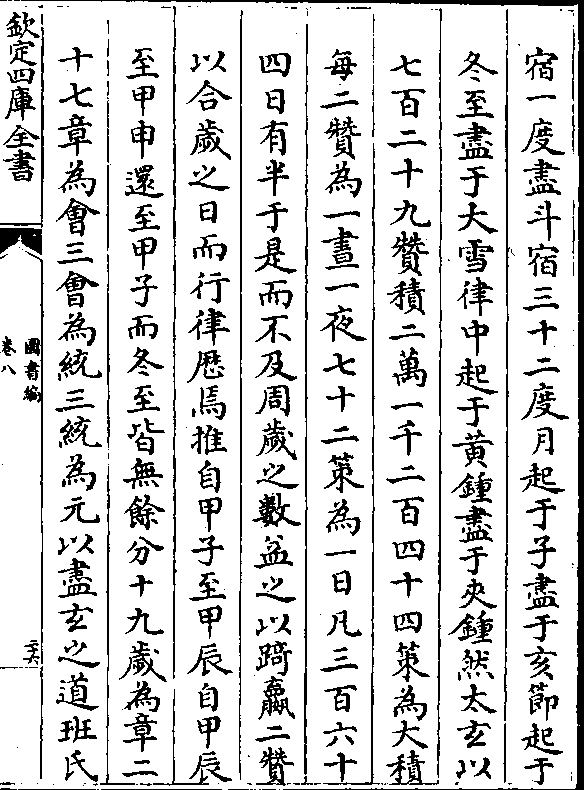 宿一度盡斗宿三十二度月起于子盡于亥節起于
冬至盡于大雪律中起于黄鍾盡于夾鍾然太玄以
七百二十九贊積二萬一千二百四十四策為大積
每二贊為一晝一夜七十二策為一日凡三百六十
四日有半于是而不及周歲之數益之以踦贏二贊
以合歲之日而行律厯焉推自甲子至甲辰自甲辰
至甲申還至甲子而冬至皆無餘分十九歲為章二
十七章為會三會為統三統為元以盡玄之道班氏
欽定四庫全書
圖書編
卷八
二六